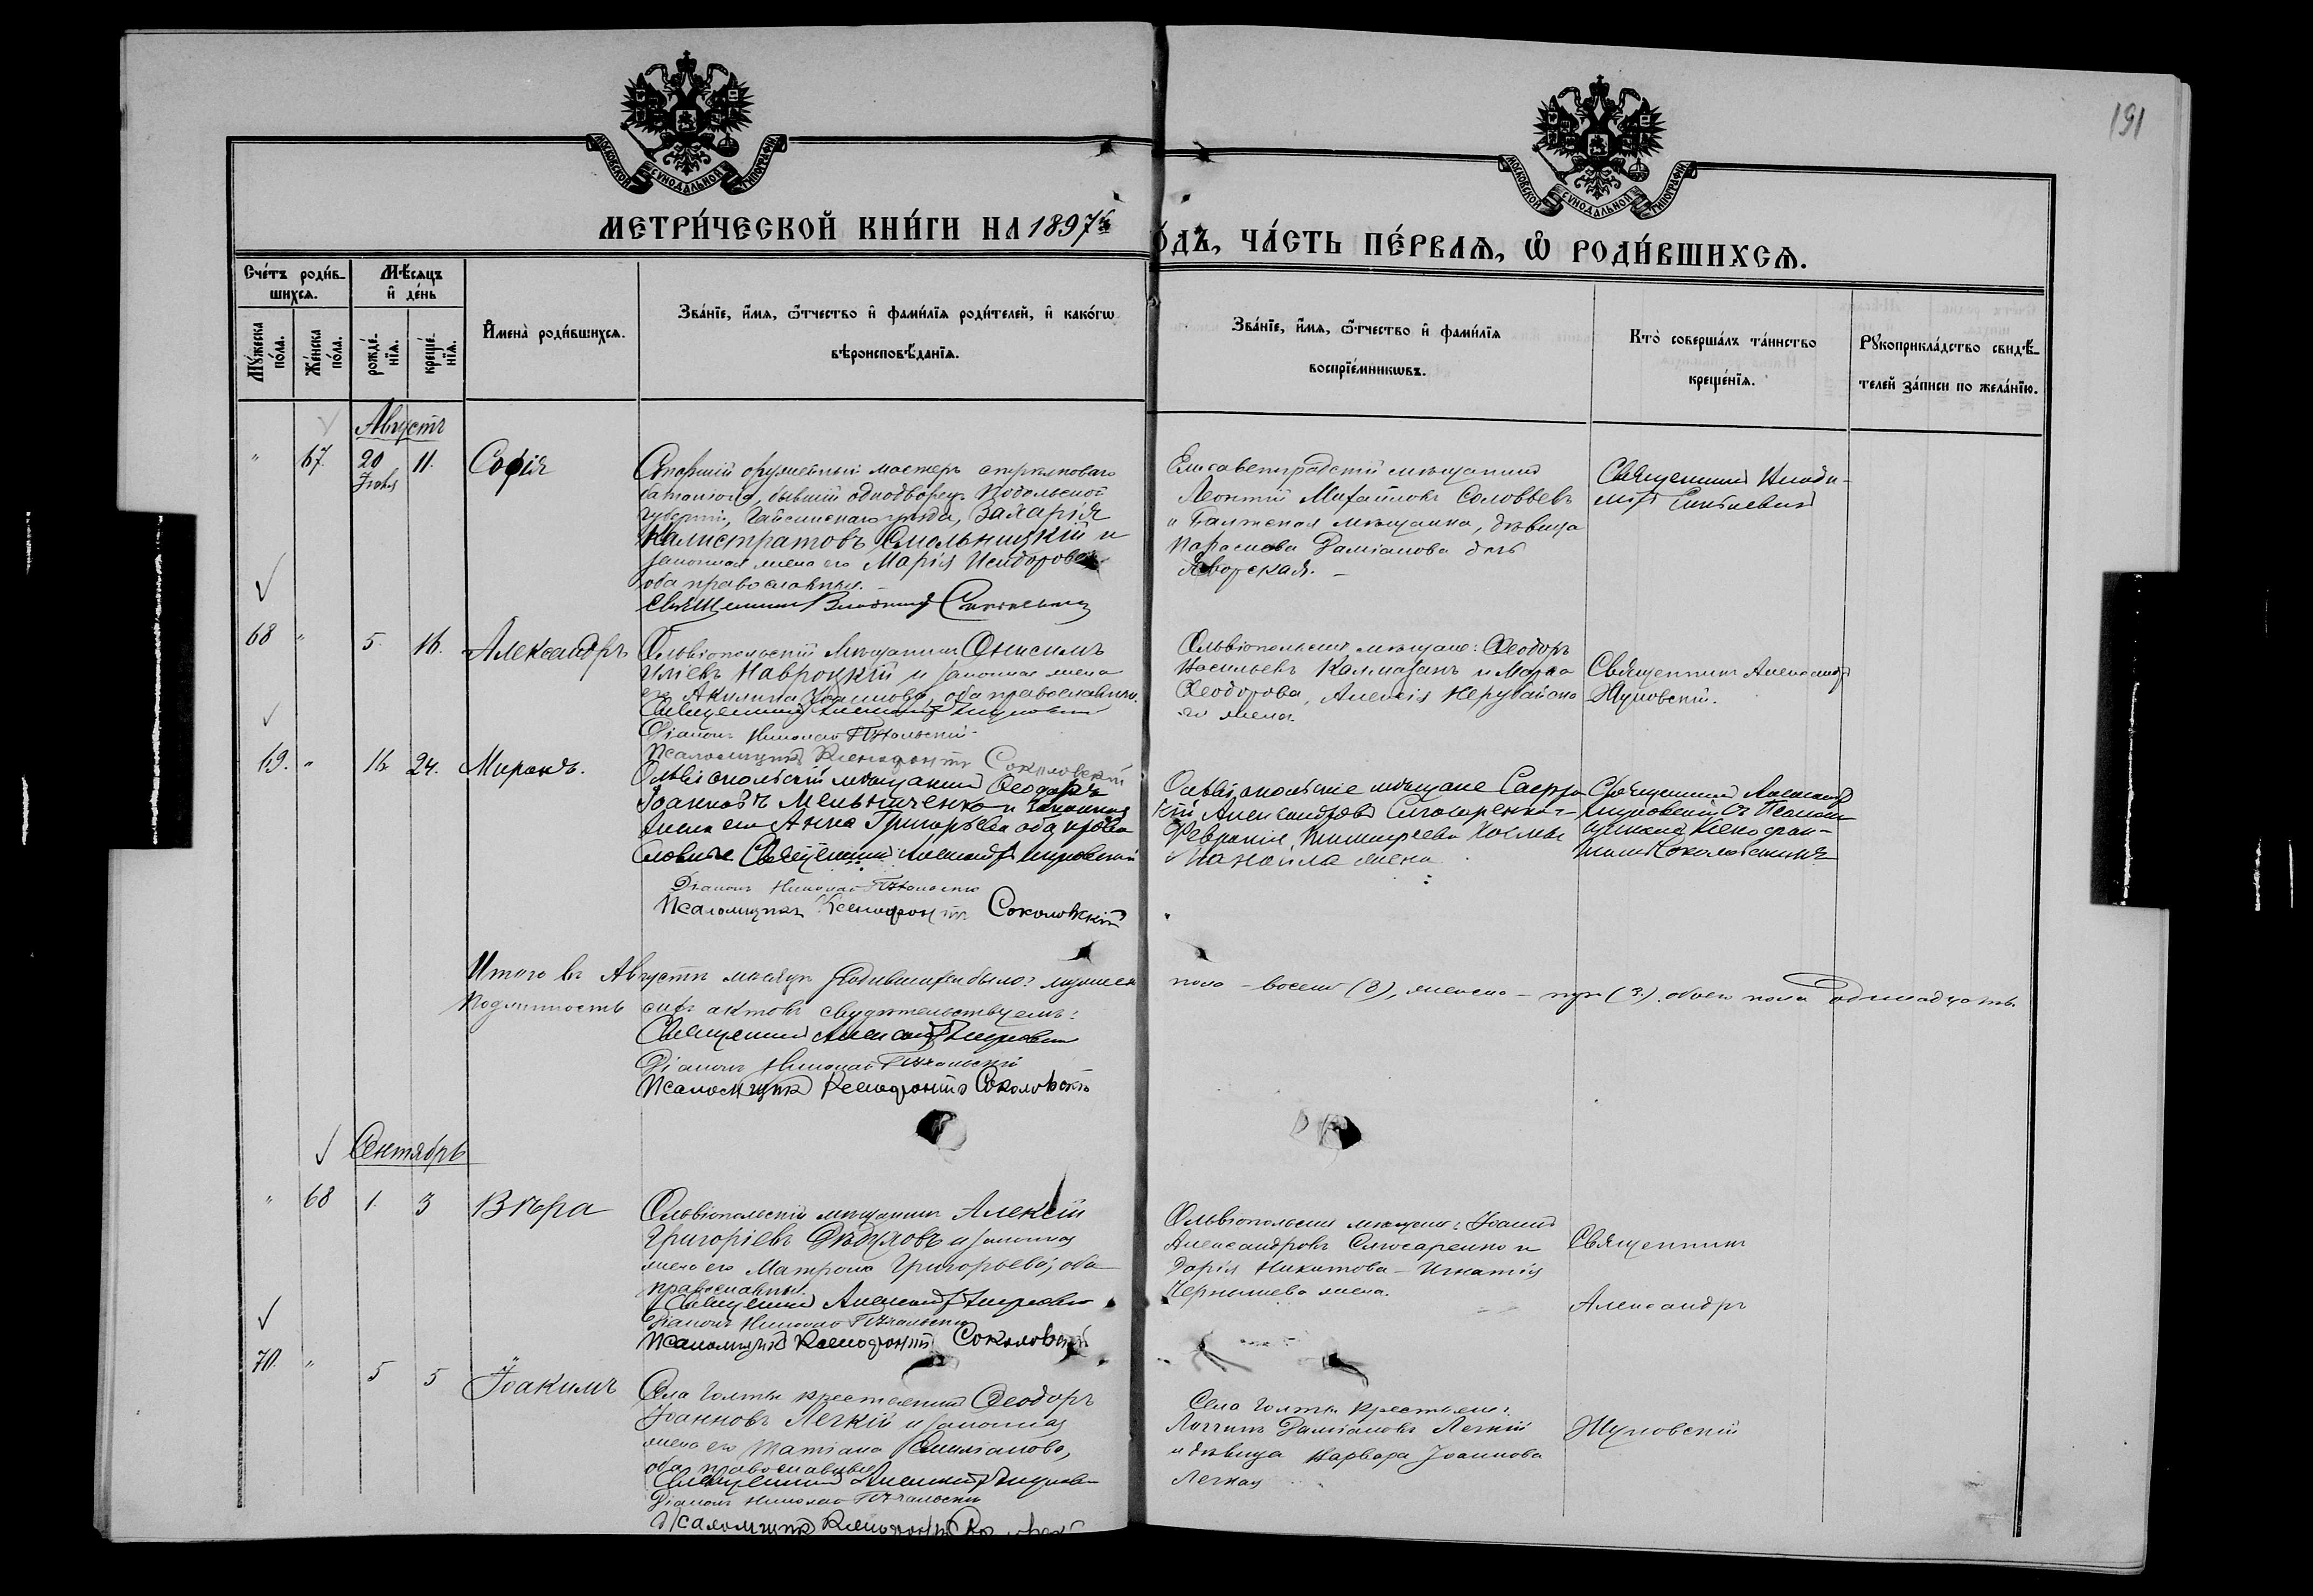 191
МОСКОВСКОЙ СѴНОДАЛЬНОЙ ТИПОГРАФІИ
МОСКОВСКОЙ СѴНОДАЛЬНОЙ ТИПОГРАФІИ
МЕТРИ́ЧЕСКОЙ КНИ́ГИ НА 1897й
О́ДЪ, ЧА́СТЬ ПЕ́РВАѦ, Ѡ РОДИ́ВШИХСѦ.
Сче́тъ роди́в-
шихсѧ.
Мѣ́сѧцъ
и҆ де́нь
Мꙋ́жеска
по́ла.
Же́нска
по́ла.
рожде́-
нїѧ.
креще́-
нїѧ.
И҆мена̀ роди́вшихсѧ.
Зва́нїе, и҆́мѧ, ѻ҆́тчество и҆ фами́лїѧ роди́телей, и҆ како́гѡ
вѣроисповѣ́данїѧ.
Зва́нїе, и҆́мѧ, ѻ҆́тчество и҆ фами́лїѧ
воспрїе́мникѡвъ.
Кто̀ соверша́лъ та́инство
креще́нїѧ.
Рꙋкоприкла́дство свидѣ́-
телей за́писи по жела́нїю.
Августъ
" 67. 20 11. Софія
Іюля
Старшій оружейный мастеръ стрѣлковаго
баталіона, бывшій однодворецъ Подольской
губерніи, Гайсинскаго уѣзда, Захарія
Калистратовъ Смольницкій и
законная жена его Марія Исидорова
оба православные.
Священникъ
Елисаветградскій мѣщанинъ
Леонтій Михайловъ Соловьевъ
и Балтская мѣщанка, дѣвица
Параскева Даміанова дочь
Яворская.
Священникъ
68 " 5. 16. Александръ
Ольвіопольскій мѣщанинъ Онисимъ
Иліевъ Навроцкій и законная жена
его Акилина Іоаннова, оба православные.
Священникъ Александръ
Діаконъ Николай
Псаломщикъ Ксенофонтъ Соколовскій
Ольвіопольскіе мѣщане: Ѳеодоръ
Васильевъ Калмазанъ и Марѳа
Ѳеодорова, Алексія
жена.
Священникъ Александръ
69. " 16 24. Миронъ.
Ольвіопольскій мѣщанинъ Ѳеодоръ
Іоанновъ Мельниченко и законная
жена его Анна Григорьева оба право
славные Священникъ Александръ
Діаконъ Николай
Псаломщикъ Ксенофонтъ Соколовскій
Ольвіопольскіе мѣщане
Александровъ
Феврония
жена
Священникъ Александръ
съ Псалом
щикомъ Ксенофон-
томъ Соколовскимъ
Итого въ Августѣ мѣсяцѣ родившихся было: мужеск
пола – восемь (8), женска – три (3), обоего пола одинадцать.
Подлинность сихъ актовъ свидѣтельствуемъ:
Священникъ Александръ
Діаконъ Николай
Псаломщикъ Ксенофонтъ Соколовскій
Сентябрь
" 68 1. 3 Вѣра
Ольвіопольскій мѣщанинъ Алексій
Григоріевъ Дѣдуловъ и законная
жена его Матрона Григорьева, оба
православные.
Священникъ Александръ
Діаконъ Николай
Псаломщикъ Ксенофонтъ Соколовскій
Ольвіопольскіе мѣщане: Іоаннъ
Александровъ Слюсаренко и
Дарія Никитова – Игнатія
Чернышева жена.
Священникъ
Александръ
70. " 5 5 Іоакимъ
Села Голты крестьянинъ Ѳеодоръ
Іоанновъ Легкій и законная
жена его Татіана Емиліанова,
оба православные
Священникъ Александръ
Діаконъ Николай
Псаломщикъ Ксенофонтъ
Села Голты крестьяне:
Логгинъ Даміановъ Легкій
и дѣвица Варвара Іоаннова
Легкая